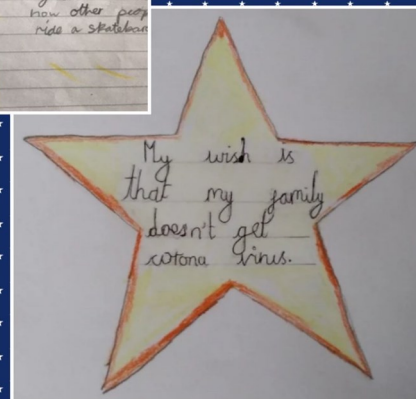 now other
ride a
My wish is
that my family
doesn't get
corona virus.